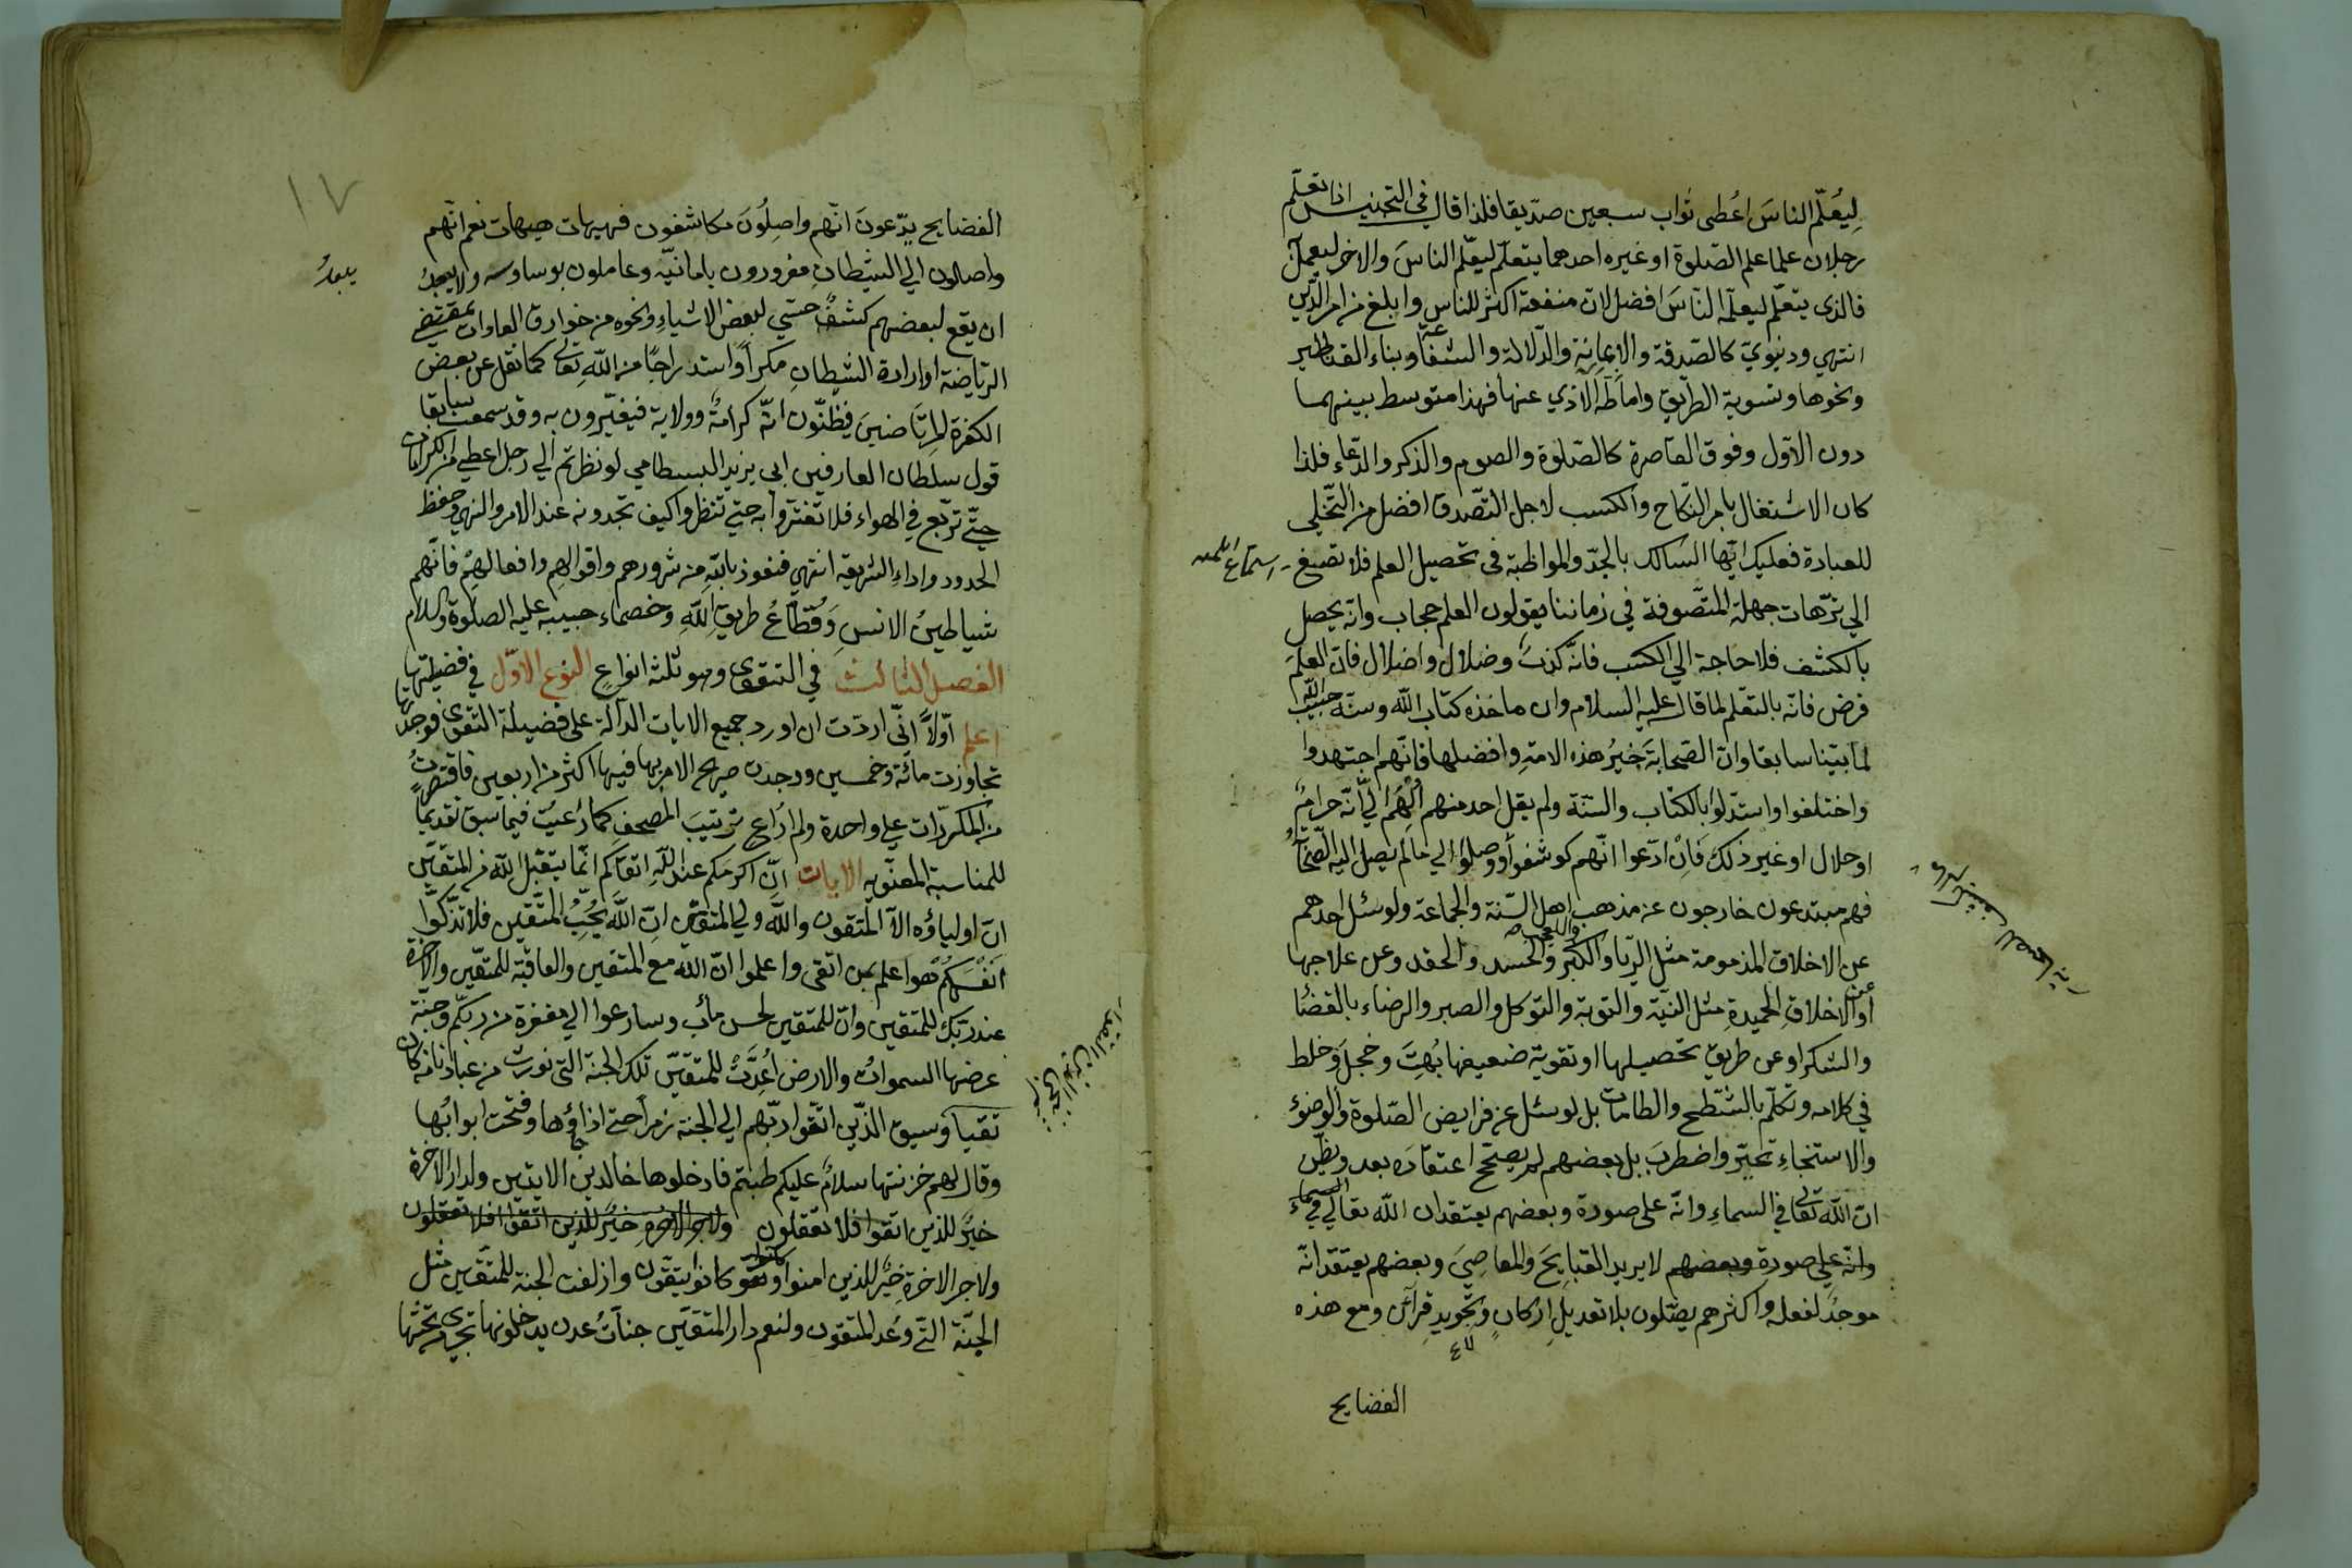 لِيُعَلّم الناسَ اعُطى ثواب سبعين صدّيقا فلذا قال في التجنيس اذا تعلّم
رجلان علما علم الصّلوة او غيره احدهما يتعلّم ليعّلم الناسَ والاخر ليعمل
فالذى يتعلّم ليعلّم النّاسَ افضل لانّ منفعة اكثر للناس وابلغ من امر الدّين
انتهي ودنيويّ كالصّدقة والاِعانِة والدّلالة والشفاعة وبناء القناطير
ونحوها وتسوية الطّريق واماطة الاذي عنها فهذا متوسط بينهما
دون الاوّل وفوق القاصرة كالصّلوة والصوم والذكر والدّعاء فلذا
كان الاشتغال بامر النّكاح والكسب لاجل التّصدق افضل من التّخلي
للعبادة فعليك ايّها السّالك بالجدّ والمواظبة فى تحصيل العلم فلا تصغ
الي ترّهات جهلة المتّصوفة في زماننا يقولون العلم حجاب وانّه يحصل
بالكشف فلا حاجة الي الكسب فانّه كذبٌ وضلال واضلال فانّ العلمَ
فرض فانّه بالتعّلم لما قال عليه السلام وان ماخذه كتاب الله وسنّة حبيب الله
لما بيّنا سابقا وانّ الصّحابةَ خيرُ هذه الامةِ وافضلها فانّهم اجتهدوا
واختلفوا واستدّلوُا بالكتاب والسّنّة ولم يقل احد منهم اُلْهِمَ اليّ انّه حرامٌ
او حلال او غير ذلك فَانِْ ادّعوا انّهم كوشفوا ووصلوا الي ما لم يصل اليه الصّحابة
فهم مبتدعون خارجون عن مذهب اهل السّنة والجماعة ولو سئل احدهم
عن الاخلاق المذمومة مثل الرّيا والكبر والحسد والحقد وعن علاجها
او عن الاخلاقِ الحميدةِ مثل النيّة والتوبة والتوكل والصبر والرضاء بالقضا
والشكر او عن طريق تحصيلها او تقوية ضعيفها بُهِتَ وخجلَ وَخلط
في كلامه وتكلّم بالشّطح والطامات بل لو سئل عن فرايض الصّلوة والوضوُء
والاستنجاءِ تحيّر واضطربَ بل بعضهم لم يصحّح اعتقاده بعد ويظّن
انّ الله تعالى في السماءِ وانّه على صورة وبعضهم يعتقد ان الله تعالي في السماء
وانّه علي صورة وبعضهم لا يريد القبايِحَ والمعاصِيَ وبعضهم يعتقد انّه
موجدٌ لفعله واكثرهم يصّلون بلا تعديلِ اركانٍ وتجويدِ قرآنٍ ومع هذه
الفضايح
١٧
الفضايح يدّعونَ انّهم واصِلُونَ مكاشفون فهيهات هيهات نعم انّهم
واصلون الي الشيْطانِ مغرورون بامانيّه وعاملون بوساوسه ولا يبعدُ
يبعدُ
ان يقع لبعضهم كشفٌ حسّي لبعض الاشياءِ ونحوه من خوارق العادات بمقتضي
الرّياضة او ارادة الشيطانِ مكراً واستدراجًا من اللّهِ تعالى كما نقل عن بعض
الكفرة المرتاضينَ فيظنّون انّه كرامةٌ وولاية فيغتّرون به وقد سمعت سابقا
قول سلطان العارفين ابى يزيد البسطامي لو نظرتم الي رجل اعطي من الكرامات
حتّي تربّع في الهواء فلا تغترّوا به حتي تنظروا كيف تجدونه عند الامر والنهي وحفظ
الحدود واداءِ الشريعة انتهي فنعوذ باللهِ من شرورهم واقوالهِم وافعالهِم فانّهم
شياطينُ الانسِ وَقُطّاعُ طريقِ اللّهِ وخصماء حبيبه عليه الصلوة والسلام
الفصل الثالث في التقوى وهو ثلثة انواعٍ النوع الاوّل في فضيلتها
اعلم اوّلاً انّى اردت ان اورد جميع الايات الدآلّة على فضيلة التقوى فوجدتها
تجاوزت مائة وخمسين ووجدت صريح الامر بها فيها اكثر من اربعين فاقتصرتُ
من المكررات علي واحدة ولم اراع ترتيبَ المصحف كما رعيتُ فيما سبق تقديمًا
للمناسبة المعنّويه الايات انّ اكرمكم عند اللّهِ اتقاكم انّما يتقبّل اللّه من المتّقين
انّ اولياؤه الّا المتّقون واللّه ولي المتقين انّ اللّهَ يُحِبُّ المتّقين فلا تزّكوا
اَنْفُسَكُم هو اعلم بمن اتقى واعلموا انّ الله مع المتقين والعاقبة للمتّقين والاخرة
عند ربّك للمتقين وانّ للمتقين لحسن مأب وسارعوا الي مغفرة من ربكّم وجنّة
عرضها السموات والارض اُعِدَّتْ للمتقّين تلك الجنة التي نورث من عبادنا من كان
تقيا وسيق الذّين اتّقوا ربّهم الي الجنة زمراً حتي اذا جاؤها وفتحت ابوابُها
وقال لهم خزنتها سلامٌ عليكم طبتم فادخلوها خالدين الايتين ولدار الاخرة
خيرٌ للذين اتقوا فلا تعقلون ولاجر الاخرة خيرٌ للذين اتقوا افلا تعقلون
ولاجر الاخرة خيرٌ للذين امنوا وكانوا يتقّون وازلفت الجنة للمتّقين مثل
الجنّة التّي وعد المتقون ولنعم دار المتقين جنّاتُ عدن يدخلونها تجرى من تحتها